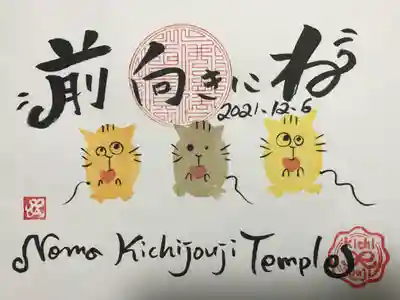 前向きにね
2021.12.6
Noma Kichijouji Temple
kichi
jouji